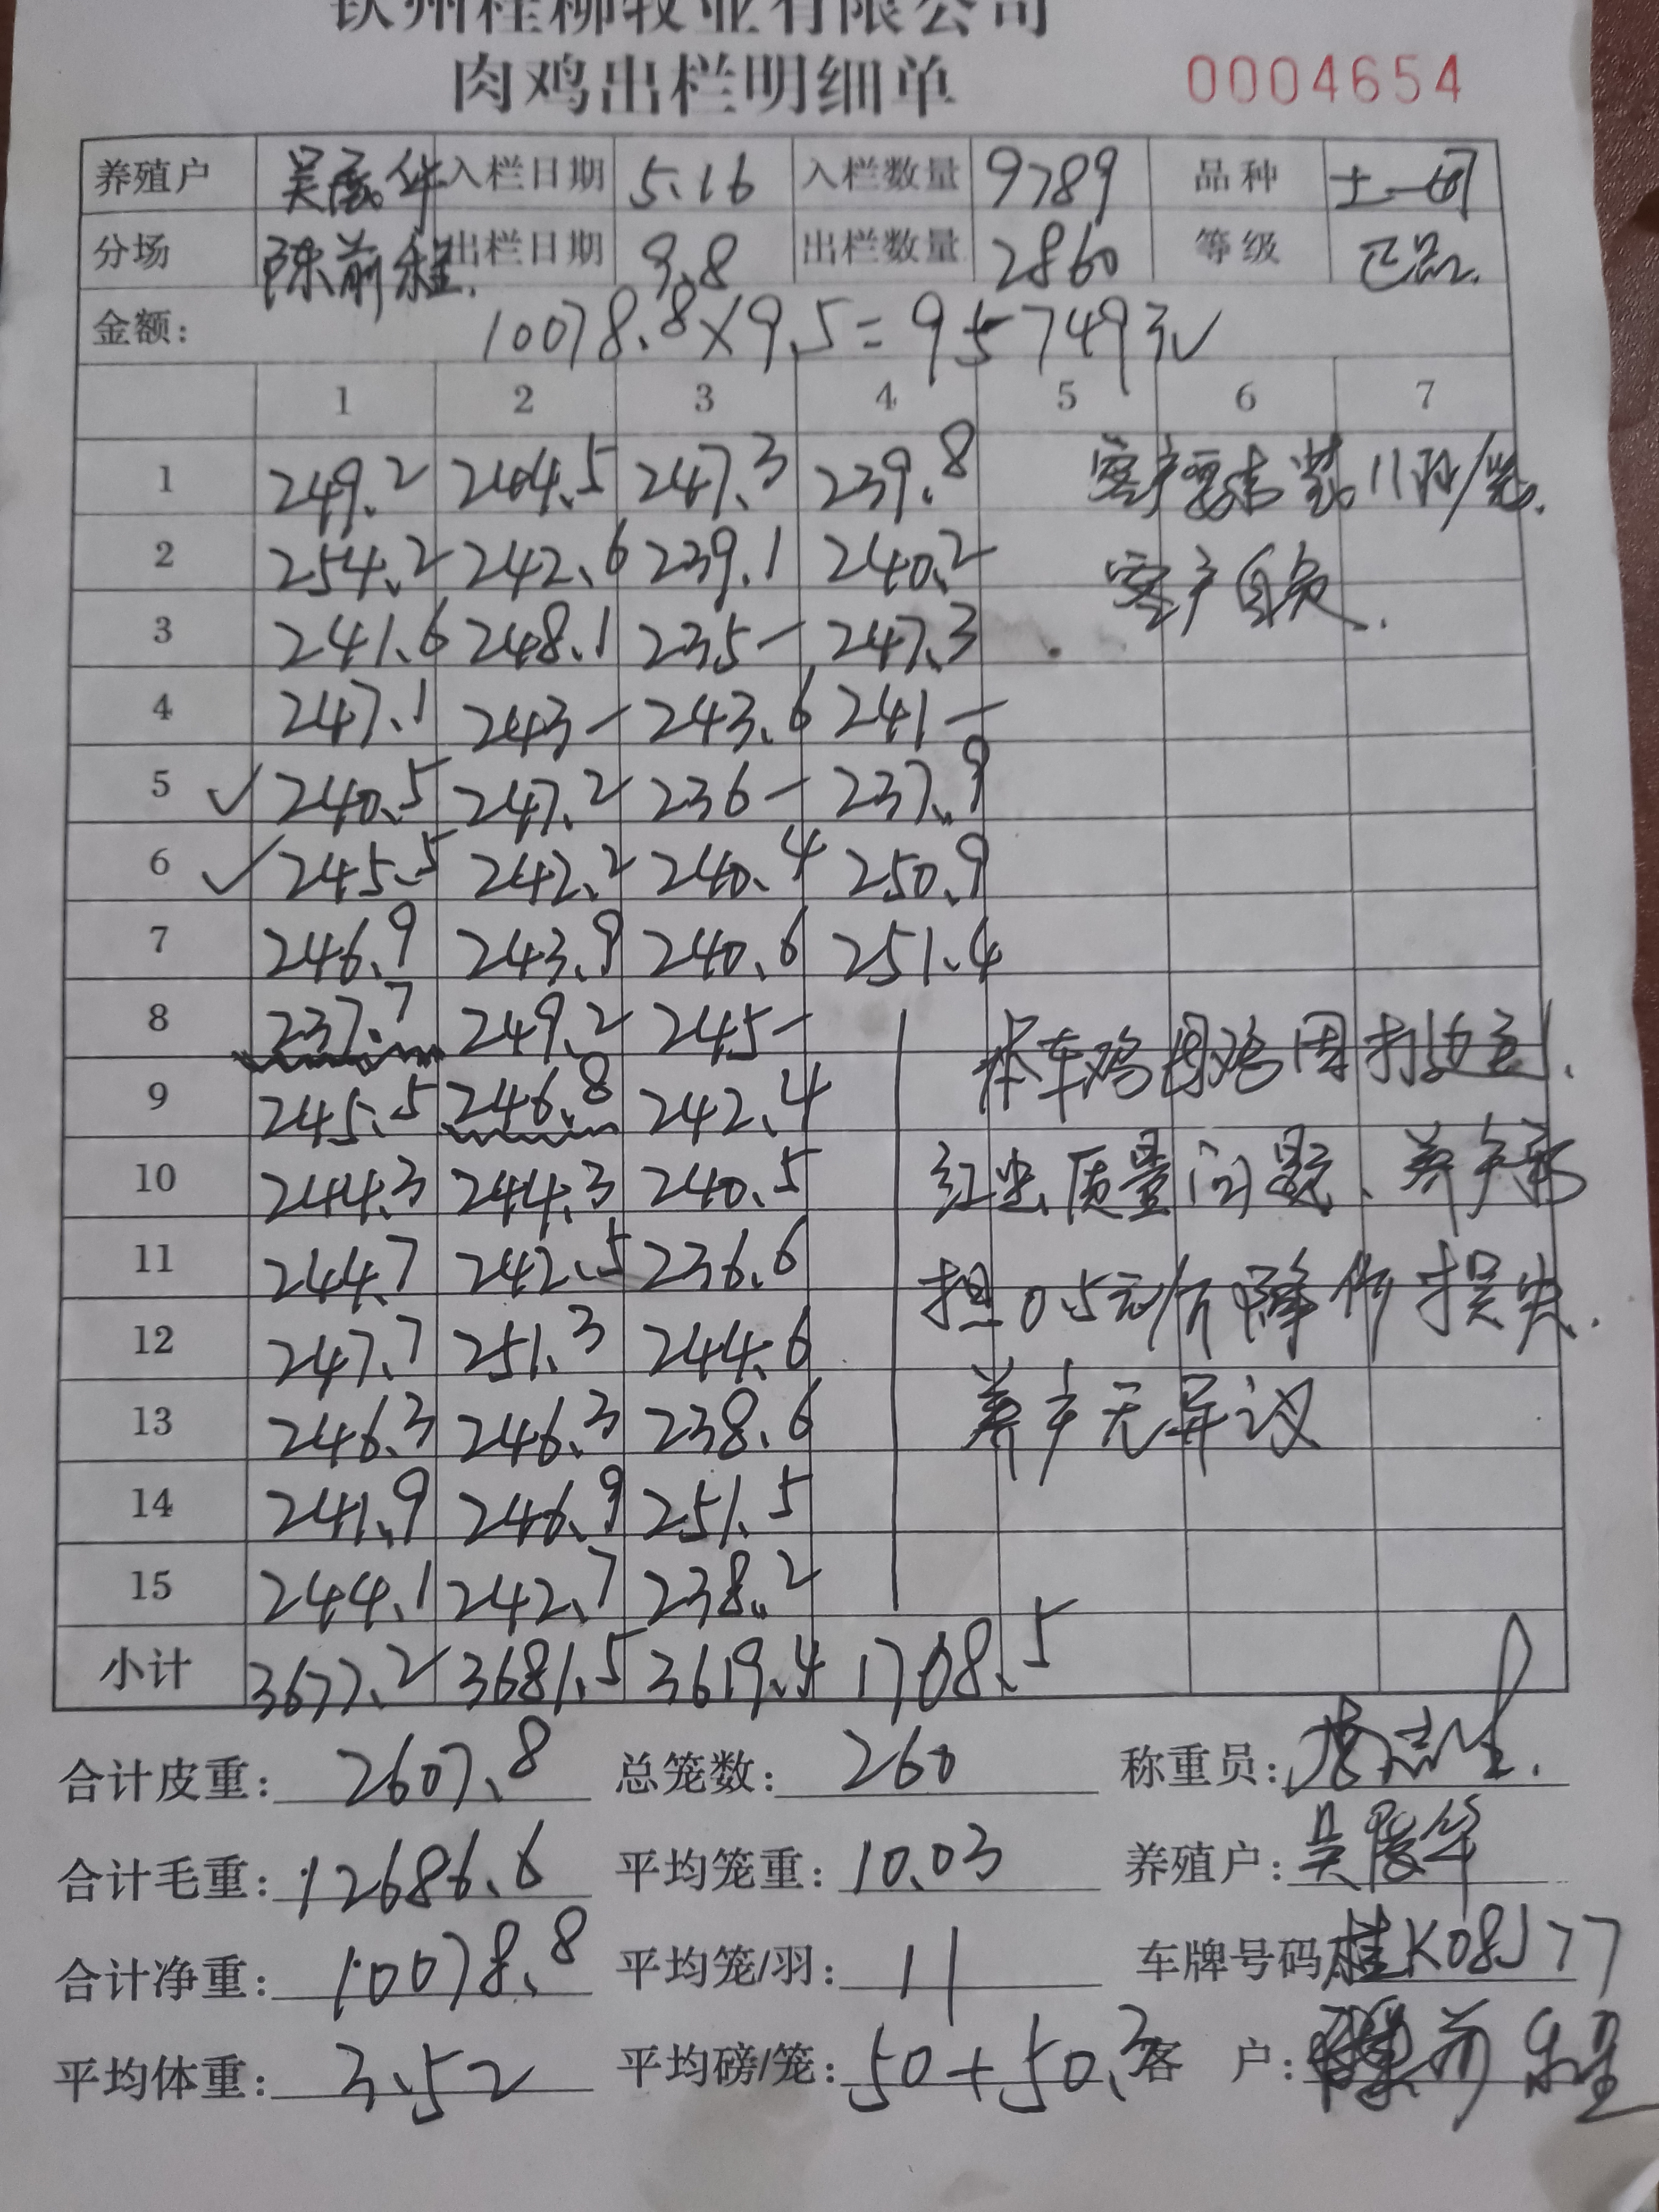 钦州桂柳牧业有限公司
肉鸡出栏明细单 0004654
养殖户 吴 华 入栏日期 5.16 入栏数量 9789 品种 土一
分场 陈前程. 出栏日期 9.8 出栏数量 2860 等级 正品.
金额: 10078.8×9.5=95749元
1 2 3 4 5 6 7
1 249.2 244.5 247.3 239.8 客户要求装11只/笼.
2 254.2 242.6 239.1 240.2 客户自负.
3 241.6 248.1 235- 247.3
4 247.1 243- 243.6 241-
5 ✓ 240.5 247.2 236- 237.9
6 ✓ 245.5 242.2 240.4 250.9
7 246.9 243.9 240.6 251.4
8 237.7 249.2 245- 本车鸡 鸡因
9 245.5 246.8 242.4
10 244.3 244.3 240.5 红虫质量问题、养户承
11 244.7 242.5 236.6 担0.5元/斤降价损失.
12 247.7 251.3 244.6
13 246.3 246.3 238.6 养户无异议
14 241.9 246.9 251.5
15 244.1 242.7 238.2
小计 3677.2 3681.5 3619.4 1708.5
合计皮重: 2607.8 总笼数: 260 称重员:
合计毛重: 12686.6 平均笼重: 10.03 养殖户: 吴 华
合计净重: 10078.8 平均笼/羽: 11 车牌号码 桂K08J77
平均体重: 3.52 平均磅/笼: 50+50.3 客 户: 陈前程